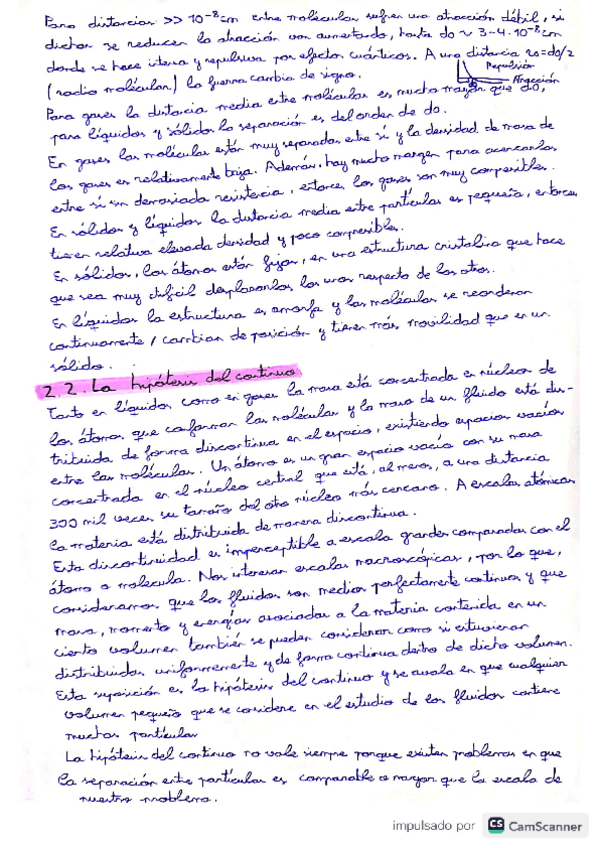 Para distancias >> 10⁻⁸cm entre moléculas sufren una atracción débil, si
dichas se reducen la atracción van aumentando, hasta do ~ 3-4·10⁻⁸cm
donde se hace intensa y repulsiva por efectos cuánticos. A una distancia ro=do/2
(radio molécular) la fuerza cambia de signo.
Repulsión
Atracción
Para gases la distancia media entre moléculas es mucho mayor que do,
para líquidos y sólidos la separación es del orden de do.
En gases las moléculas están muy separadas entre sí y la densidad de masa de
los gases es relativamente baja. Además, hay mucho margen para acercarlas
entre sí sin demasiada resistencia, entonces los gases son muy compresibles.
En sólidos y líquidos la distancia media entre partículas es pequeña, entonces
tienen relativa elevada densidad y poco compresibles.
En sólidos, los átomos están fijos, en una estructura cristalina que hace
que sea muy difícil desplazarlos los unos respecto de los otros.
En líquidos la estructura es amorfa y las moléculas se reordenan
continuamente / cambian de posición y tienen más movilidad que en un
sólido.
2.2. La hipótesis del continuo
Tanto en líquidos como en gases la masa está concentrada en núcleos de
los átomos que conforman las moléculas y la masa de un fluido está dis-
tribuida de forma discontinua en el espacio, existiendo espacios vacíos
entre las moléculas. Un átomo es un gran espacio vacío con su masa
concentrada en el núcleo central que está, al menos, a una distancia
300 mil veces su tamaño del otro núcleo más cercano. A escalas atómicas
la materia está distribuida de manera discontinua.
Esta discontinuidad es imperceptible a escala grandes comparadas con el
átomo o molécula. Nos interesan escalas macroscópicas, por lo que,
consideramos que los fluidos son medios perfectamente continuos y que
masa, momento y energías asociadas a la materia contenida en un
cierto volumen también se pueden considerar como si estuvieran
distribuidas uniformemente y de forma continua dentro de dicho volumen.
Esta suposición es la hipótesis del continuo y se avala en que cualquier
volumen pequeño que se considere en el estudio de los fluidos contiene
muchas partículas
La hipótesis del continuo no vale siempre porque existen problemas en que
la separación entre partículas es comparable o mayor que la escala de
nuestro problema.
impulsado por CS CamScanner